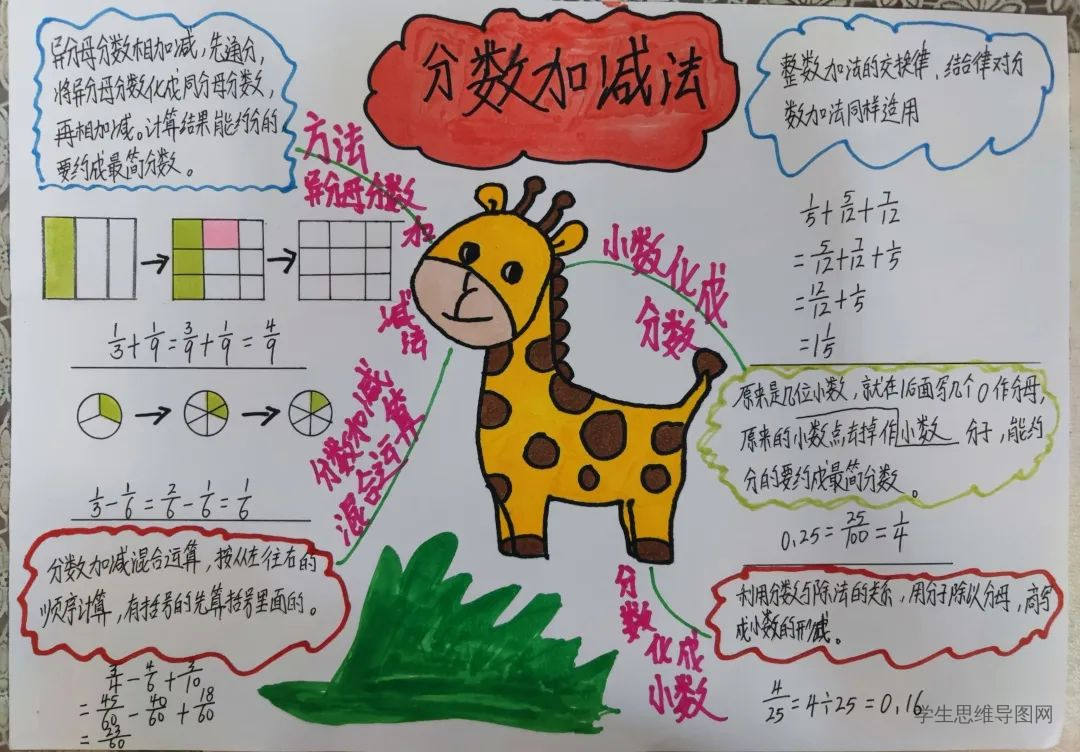 分数加减法
异分母分数相加减，先通分，
将异分母分数化成同分母分数，
再相加减。计算结果能约分的
要约成最简分数。
方法
异分母分数
加
减法
1/3+1/9=3/9+1/9=4/9
1/3-1/6=2/6-1/6=1/6
分数加减
混合运算
分数加减混合运算，按从左往右的
顺序计算，有括号的先算括号里面的。
3/4-4/6+3/10
=45/60-40/60+18/60
=23/60
整数加法的交换律、结合律对分
数加法同样适用
1/5+5/12+7/12
=5/12+7/12+1/5
=12/12+1/5
=1 1/5
小数化成
分数
原来是几位小数，就在1后面写几个0作分母，
原来的小数点去掉作小数 分子，能约
分的要约成最简分数。
0.25=25/100=1/4
分数化成
小数
利用分数与除法的关系，用分子除以分母，商写
成小数的形
4/25=4÷25=0.16
学生思维导图网